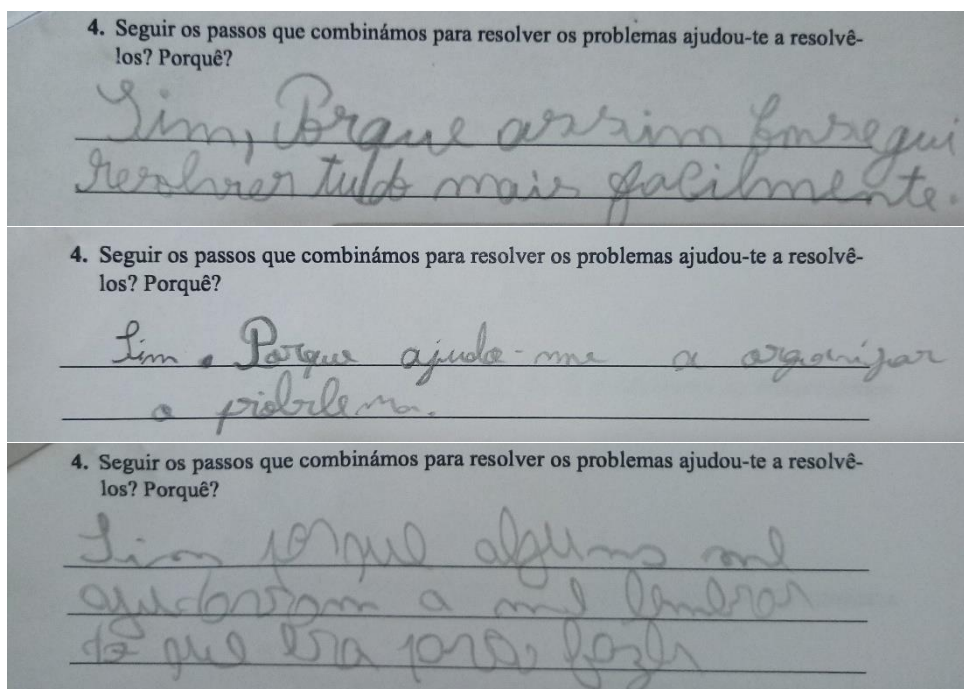 4. Seguir os passos que combinámos para resolver os problemas ajudou-te a resolvê-
los? Porquê?
Sim, Porque assim Consegui
Resolver tuldo mais facilmente.
4. Seguir os passos que combinámos para resolver os problemas ajudou-te a resolvê-
los? Porquê?
Sim. Porque ajuda-me a organizar
o problema.
4. Seguir os passos que combinámos para resolver os problemas ajudou-te a resolvê-
los? Porquê?
Sim porque alguns me
ajudaram a me lembrar
do que era para fazer